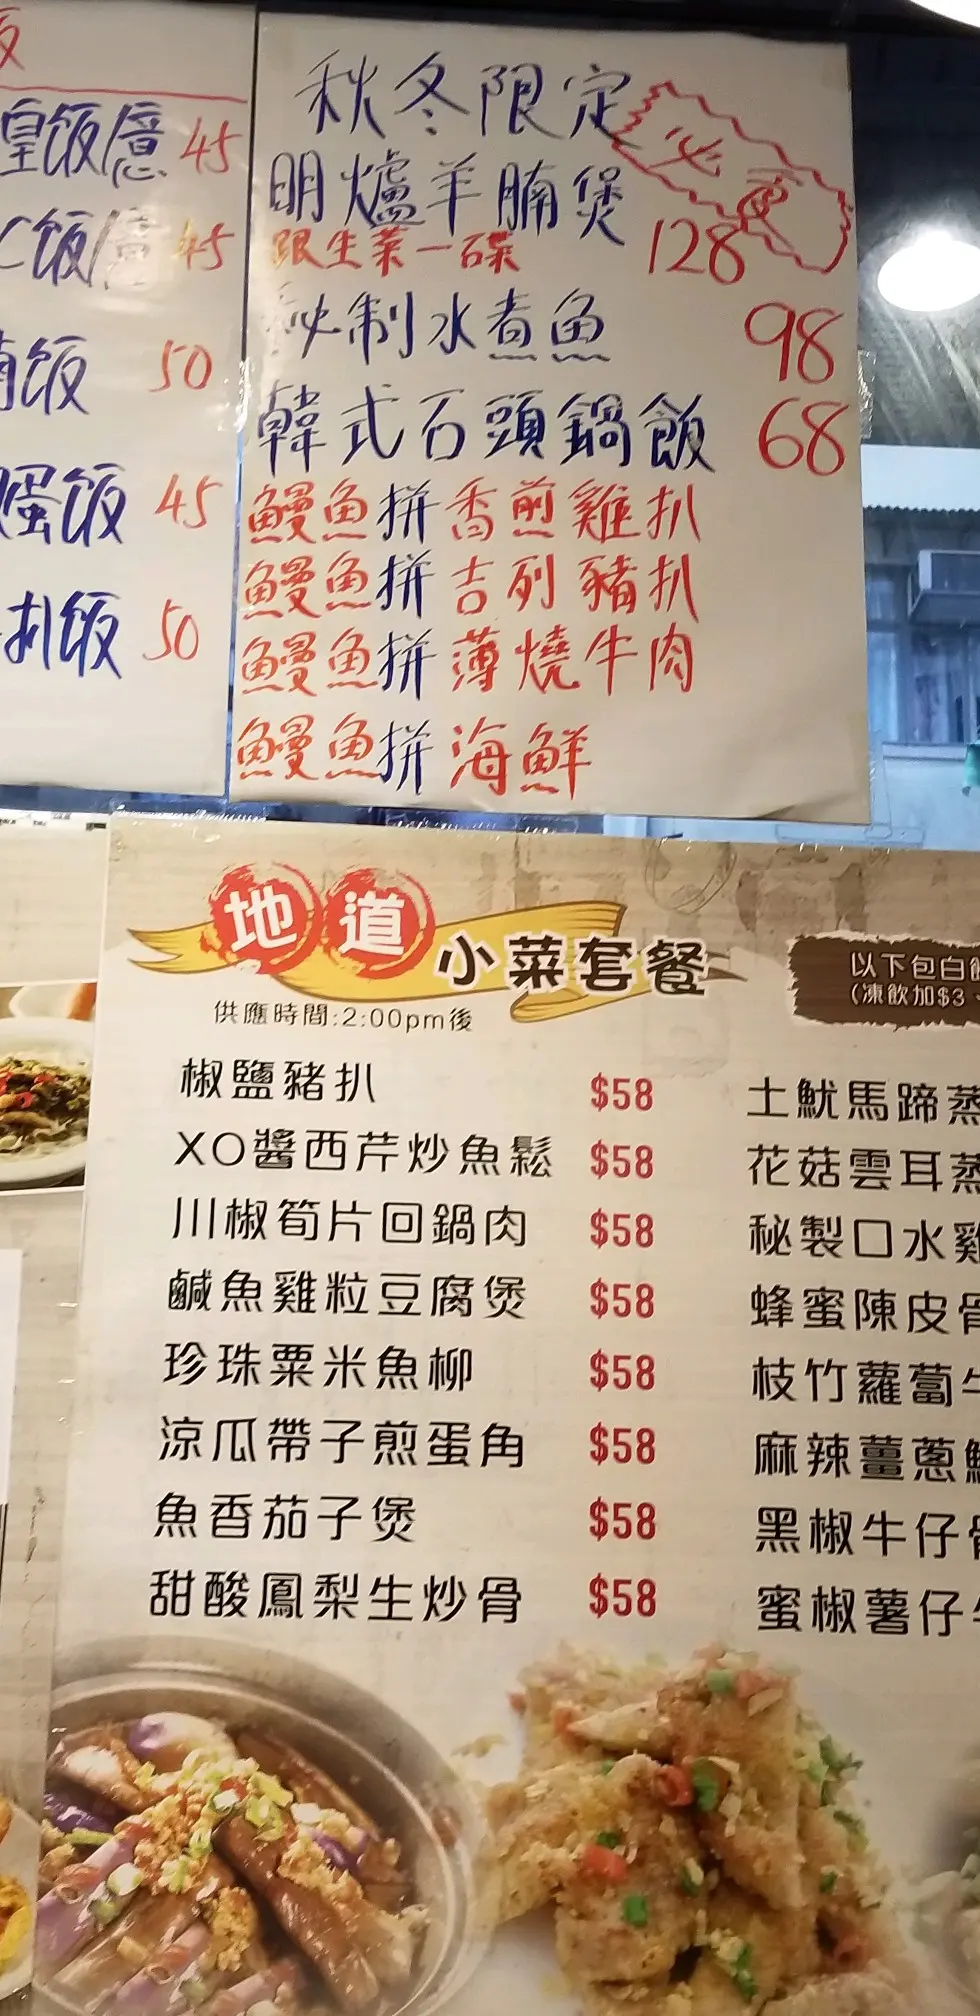 皇飯 45
飯 45
飯 50
蛋飯 45
扒飯 50
秋冬限定
必食
明爐羊腩煲
跟生菜一碟 128
秘制水煮魚 98
韓式石頭鍋飯 68
鰻魚拼香煎雞扒
鰻魚拼吉列豬扒
鰻魚拼薄燒牛肉
鰻魚拼海鮮
地道小菜套餐
供應時間:2:00pm後
以下包白飯
(凍飲加$3
椒鹽豬扒 $58
XO醬西芹炒魚鬆 $58
川椒筍片回鍋肉 $58
鹹魚雞粒豆腐煲 $58
珍珠粟米魚柳 $58
涼瓜帶子煎蛋角 $58
魚香茄子煲 $58
甜酸鳳梨生炒骨 $58
土魷馬蹄蒸
花菇雲耳蒸
秘製口水雞
蜂蜜陳皮骨
枝竹蘿蔔牛
麻辣薑蔥
黑椒牛仔骨
蜜椒薯仔牛